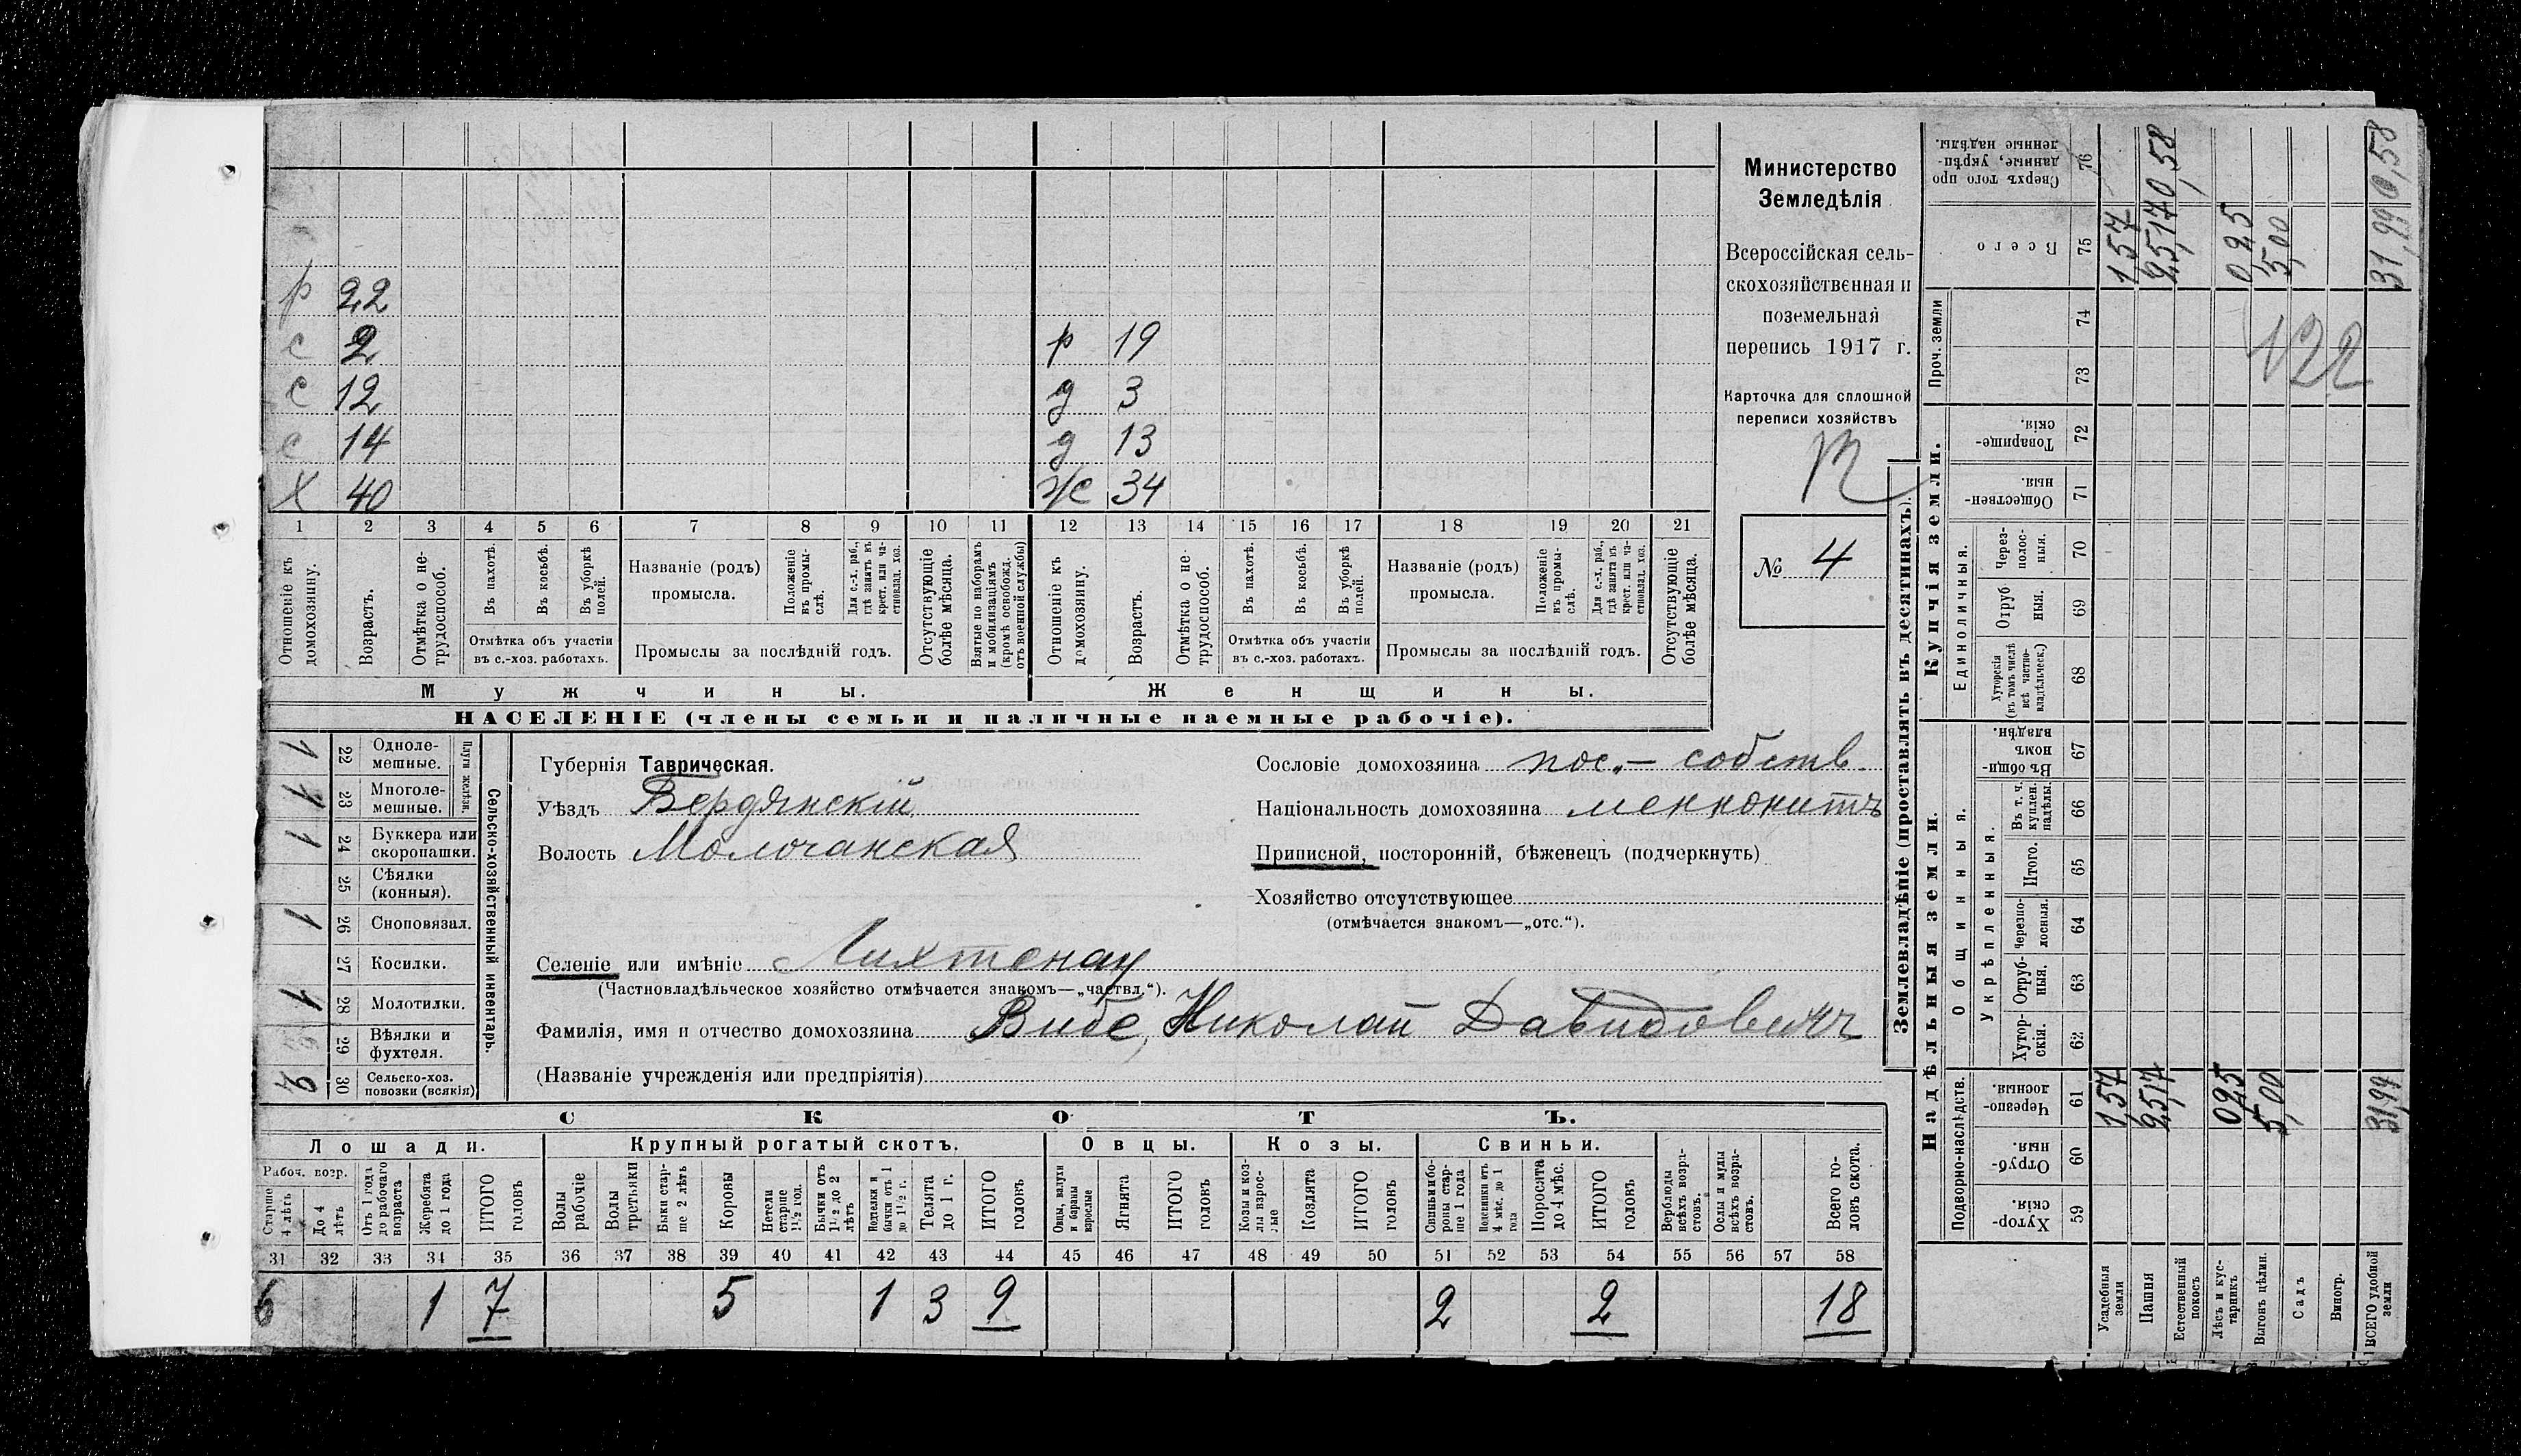 р 22
с 2 р 19
с 12 д 3
с 14 д 13
Х 40 ж 34
1 2 3 4 5 6 7 8 9 10 11 12 13 14 15 16 17 18 19 20 21
Отношеніе къ домохозяину.
Возрастъ.
Отмѣтка о не-трудоспособ.
Въ пахотѣ.
Въ косьбѣ.
Въ уборкѣ полей.
Отмѣтка объ участіи
въ с.-хоз. работахъ.
Названіе (родъ)
промысла.
Положеніе въ промы-слѣ.
Для с.-х. раб., гдѣ занятъ въ крест. или ча-стновлад. хоз.
Промыслы за послѣдній годъ.
Отсутствующіе болѣе мѣсяца.
Взятые по наборамъ и мобилизаціямъ (кромѣ освобожд. отъ военной службы)
Отношеніе къ домохозяину.
Возрастъ.
Отмѣтка о не-трудоспособ.
Въ пахотѣ.
Въ косьбѣ.
Въ уборкѣ полей.
Отмѣтка объ участіи
въ с.-хоз. работахъ.
Названіе (родъ)
промысла.
Положеніе въ промы-слѣ.
Для с.-х. раб., гдѣ занята въ крест. или ча-стновлад. хоз.
Промыслы за послѣдній годъ.
Отсутствующіе болѣе мѣсяца.
Мужчины. Женщины.
НАСЕЛЕНІЕ (члены семьи и наличные наемные рабочіе).
Министерство
Земледѣлія
Всероссійская сель-
скохозяйственная и
поземельная
перепись 1917 г.
Карточка для сплошной
переписи хозяйствъ
№ 4
Сельско-хозяйственный инвентарь.
Плуги желѣзн.
1 22 Одноле-
мешные.
1 23 Многоле-
мешные.
1 24 Буккера или
скоропашки.
25 Сѣялки
(конныя).
1 26 Сноповязал.
27 Косилки.
1 28 Молотилки.
29 Вѣялки и
фухтеля.
30 Сельско-хоз.
повозки (всякія)
Губернія Таврическая.
Уѣздъ Бердянскій
Волость Молочанская
Сословіе домохозяина пос.- собств.
Національность домохозяина меннонитъ
Приписной, посторонній, бѣженецъ (подчеркнуть)
Хозяйство отсутствующее
(отмѣчается знакомъ—„отс.“).
Селеніе или имѣніе Лихтенау
(Частновладѣльческое хозяйство отмѣчается знакомъ—„частвл.“).
Фамилія, имя и отчество домохозяина Вибе, Николай Давидовичъ
(Названіе учрежденія или предпріятія)
СКОТЪ.
Лошади. Крупный рогатый скотъ. Овцы. Козы. Свиньи.
Рабоч. возр.
Старше 4 лѣтъ
До 4 лѣтъ
Отъ 1 года до рабочаго возраста
Жеребята до 1 года
ИТОГО головъ
Волы рабочіе
Волы третьяки
Быки стар-ше 2 лѣтъ
Коровы
Нетели старше 1½ год.
Бычки отъ 1½ до 2 лѣтъ
Подтелки и бычки отъ 1 до 1½ г.
Телята до 1 г.
ИТОГО головъ
Овцы, валухи и бараны взрослые
Ягнята
ИТОГО головъ
Козы и коз-лы взрос-лые
Козлята
ИТОГО головъ
Свиньи и бо-ровы стар-ше 1 года
Подсвинки отъ 4 мѣс. до 1 года
Поросята до 4 мѣс.
ИТОГО головъ
Верблюды всѣхъ возра-стовъ.
Ослы и мулы всѣхъ возра-стовъ.
Всего го-ловъ скота.
31 32 33 34 35 36 37 38 39 40 41 42 43 44 45 46 47 48 49 50 51 52 53 54 55 56 57 58
6 1 7 5 1 3 9 2 2 18
Землевладѣніе (проставлять въ десятинахъ).
Надѣльныя земли.
Купчія земли.
Проч. земли
Подворно-наслѣдств.
Общинныя.
Укрѣпленныя.
Единоличныя.
Сверхъ того про-данные, укрѣп-ленные надѣлы. 76 0,58 0,58
Всего 75 1 57 25,17 0,25 5,00 31,99
74
73
122
Товарище-скія. 72
Обществен-ныя. 71
Через-полос-ныя. 70
Отруб ныя. 69
Хуторскія (въ томъ числѣ всѣ частно-владѣльческ.) 68
Въ общи-номъ владѣн. 67
Въ т. ч. куплен. надѣлы. 66
Итого. 65
Черезпо-лосныя. 64
Отруб-ныя. 63
Хутор-скія. 62
Черезпо-лосныя. 61 1 57 25,17 0,25 5,00 31,99
Отруб-ныя. 60
Хутор-скія. 59
Усадебныя земли
Пашня
Естественный покосъ
Лѣсъ и кус-тарникъ
Выгонъ цѣлин.
Садъ
Виногр.
ВСЕГО удобной земли